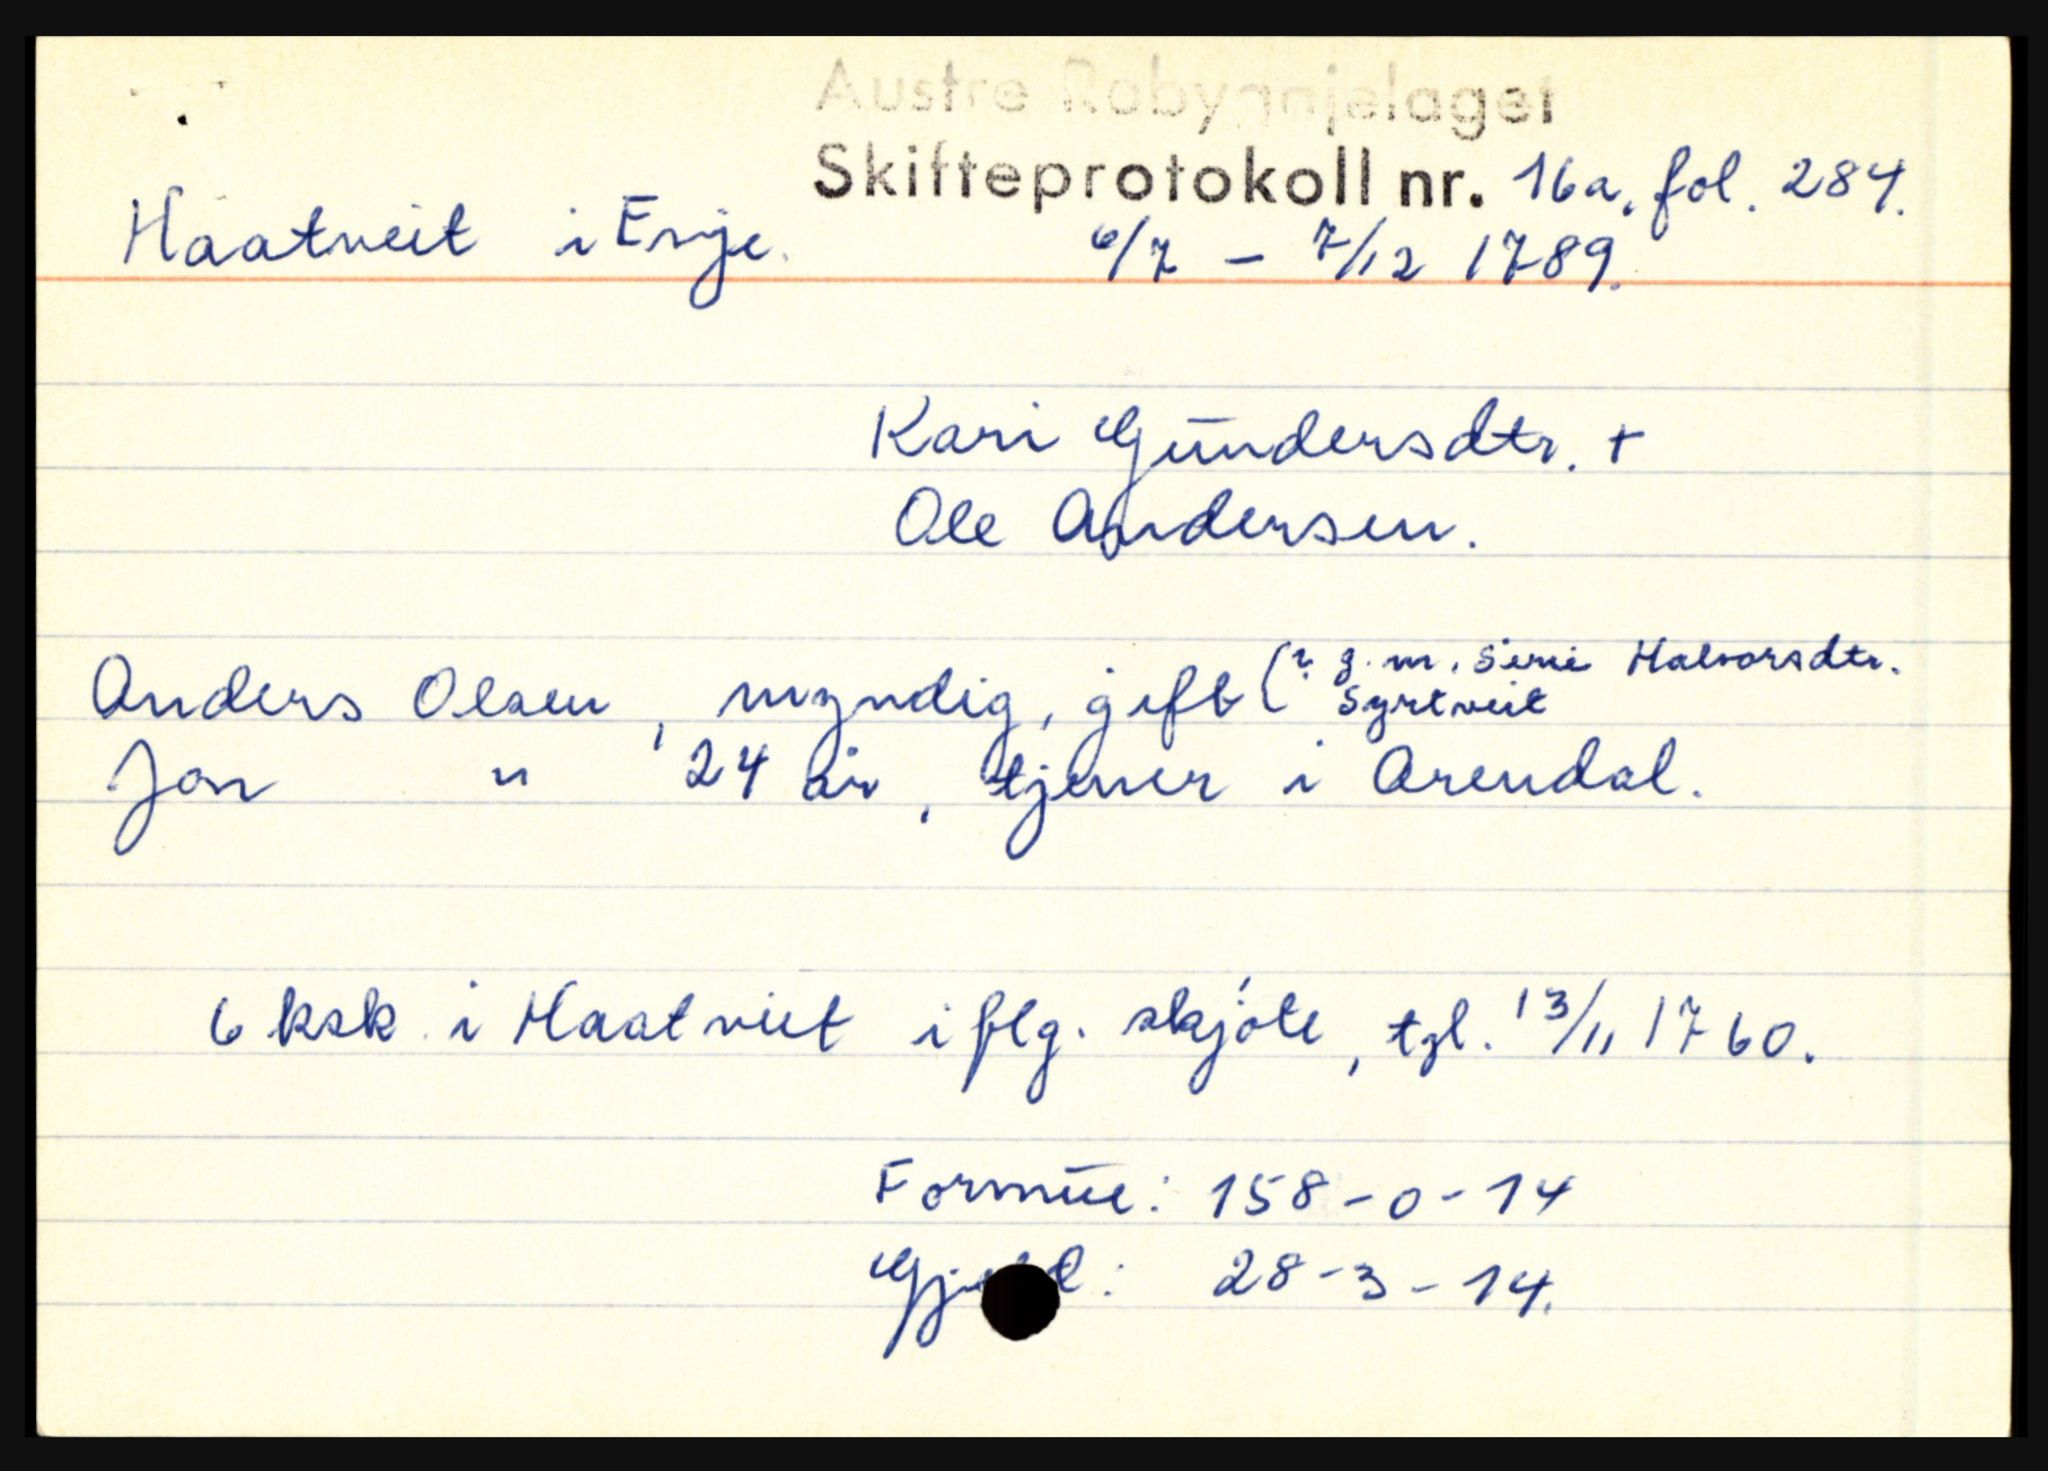 Austre Robyggnjelaget
Skifteprotokoll nr. 16a, fol. 284.
Haatveit i Evje. 6/7 - 7/12 1789.
Kari Gundersdtr. +
Ole Andersen.
Anders Olsen, myndig, gift (? g. m. Siri Halvorsdtr. Syrtveit
Jon " 24 år, tjener i Arendal.
6 ksk. i Haatveit iflg. skjöte, tgl. 13/11 1760.
Formue: 158-0-14
28-3-14.